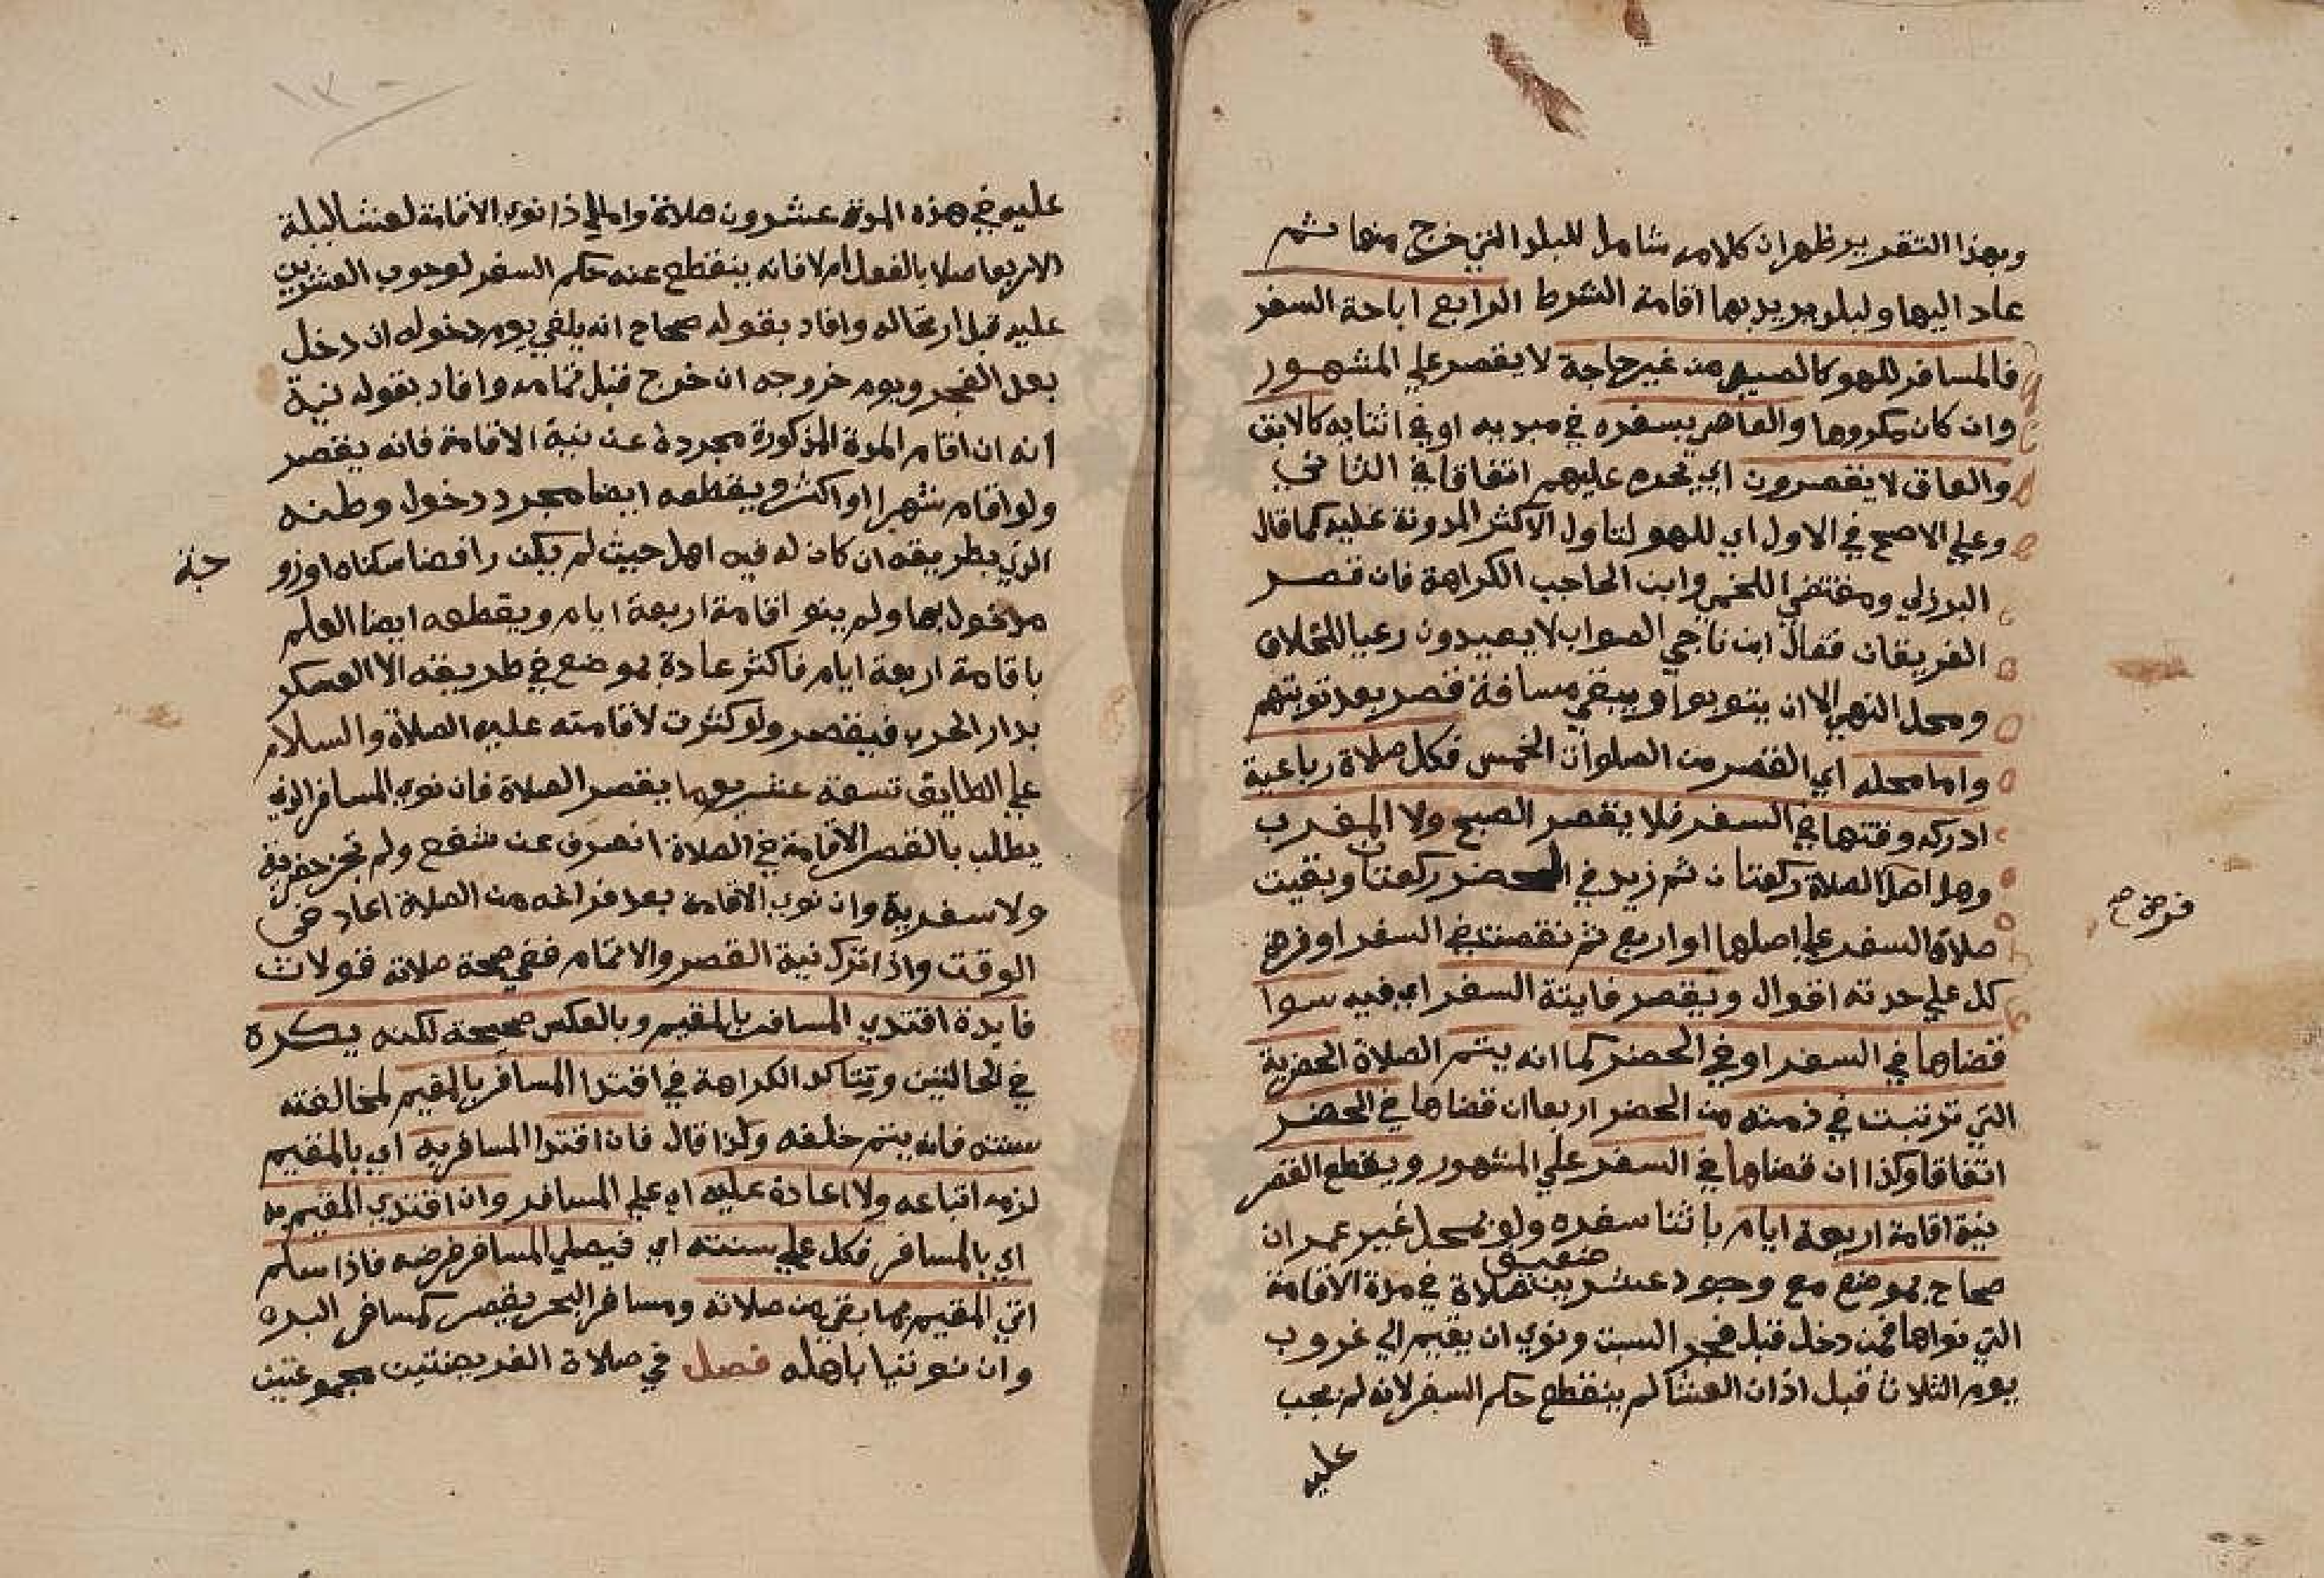 وبهذا التقرير ظهران كلامه شامل للبلد التي خرج منها ثم
عاد اليها ولبلد يريد بها اقامة الشرط الرابع اباحة السفر
فالمسافر للهو كالصيد من غير حاجة لا يقصر على المشهور
وان كان مكروها والعاصي بسفره في مبديه او في اثنايه كالابق
والعاق لا يقصرون اي يحرم عليهم اتفاقا في الثاني
وعلي الاصح في الاول اي للهو لتاول الاكثر المدونة عليه كما قال
البرزلي ومقتضي اللخمي وابن الحاجب الكراهة فان قصر
الفريقان فقال ابن ناجي الصواب لا يعيدون رعيا للخلاف
ومحل النهي الا ان يتوبوا ويبقي مسافة قصر بعد توبتهم
واما محله اي القصر من الصلوات الخمس فكل صلاة رباعية
ادركه وقتها في السفر فلا يقصر الصبح ولا المغرب
وهل اصل الصلاة ركعتان ثم زيد في الحضر ركعتان وبقيت
صلاة السفر علي اصلها او اربع ثم نقصت في السفر او فرض
فرض صح
كل علي حدته اقوال ويقصر فايتة السفر اي فيه سوا
قضاها في السفر او في الحضر كما انه يتم الصلاة الحضرية
التي ترتبت في ذمته من الحضر اربعا ان قضاها في الحضر
اتفاقا وكذا ان قضاها في السفر علي المشهور ويقطع القصر
نية اقامة اربعة ايام باثنا سفره ولو بمحل غير عمران
ضعيف
صحاح بموضع مع وجود عشرين صلاة في مدة الاقامة
التي نواها فمن دخل قبل فجر السبت ونوي ان يقيم الي غروب
يوم الثلاث قبل اذان العشا لم ينقطع حكم السفر لانه لم يجب
عليه
عليه في هذه المدة عشرون صلاة وامالي ذا نوي الاقامة لعشا ليلة
الاربعا صلا بالفعل ام لا فانه ينقطع عنه حكم السفر لوجوب العشرين
عليه قبل ارتحاله وافاد بقوله صحاح انه يلغي يوم دخوله ان دخل
بعد الفجر ويوم خروجه ان خرج قبل تمامه وافاد بقوله نية
انه ان اقام المدة المذكورة مجردة عن نية الاقامة فانه يقصر
ولو اقام شهرا او اكثر ويقطعه ايضا مجرد دخول وطنه
الذي بطريقه ان كان له فيه اهل حيث لم يكن رافضا سكناه او زو
جته
مدخول بها ولم ينو اقامة اربعة ايام ويقطعه ايضا العلم
باقامة اربعة ايام فاكثر عادة بموضع في طريقه الا العسكر
بدار الحرب فيقصر ولو كثرت لاقامته عليه الصلاة والسلام
علي الطايف تسعة عشر يوما يقصر الصلاة فان نوي المسافر الذي
يطلب بالقصر الاقامة في الصلاة انصرف عن شفع ولم تجز حضرية
ولا سفرية وان نوي الاقامة بعد فراغه من الصلاة اعاد في
الوقت واذا ترك نية القصر والاتمام ففي صحة صلاته قولان
فايدة اقتدي المسافر بالمقيم وبالعكس صحيحة لكنه يكره
في الحالتين وتتاكد الكراهة في اقتدا المسافر بالمقيم لمخالفته
سنته فانه يتم خلفه ولذا قال فان اقتدا المسافر به اي بالمقيم
لزمه اتباعه ولا اعادة عليه اي علي المسافر وان اقتدي المقيم به
اي بالمسافر فكل علي سنته اي فيصلي المسافر فرضه فاذا سلم
اتي المقيم بما بقي من صلاته ومسافر البحر يقصر كمسافر البر
وان نوتيا باهله فصل في صلاة الفريضتين مجموعتين